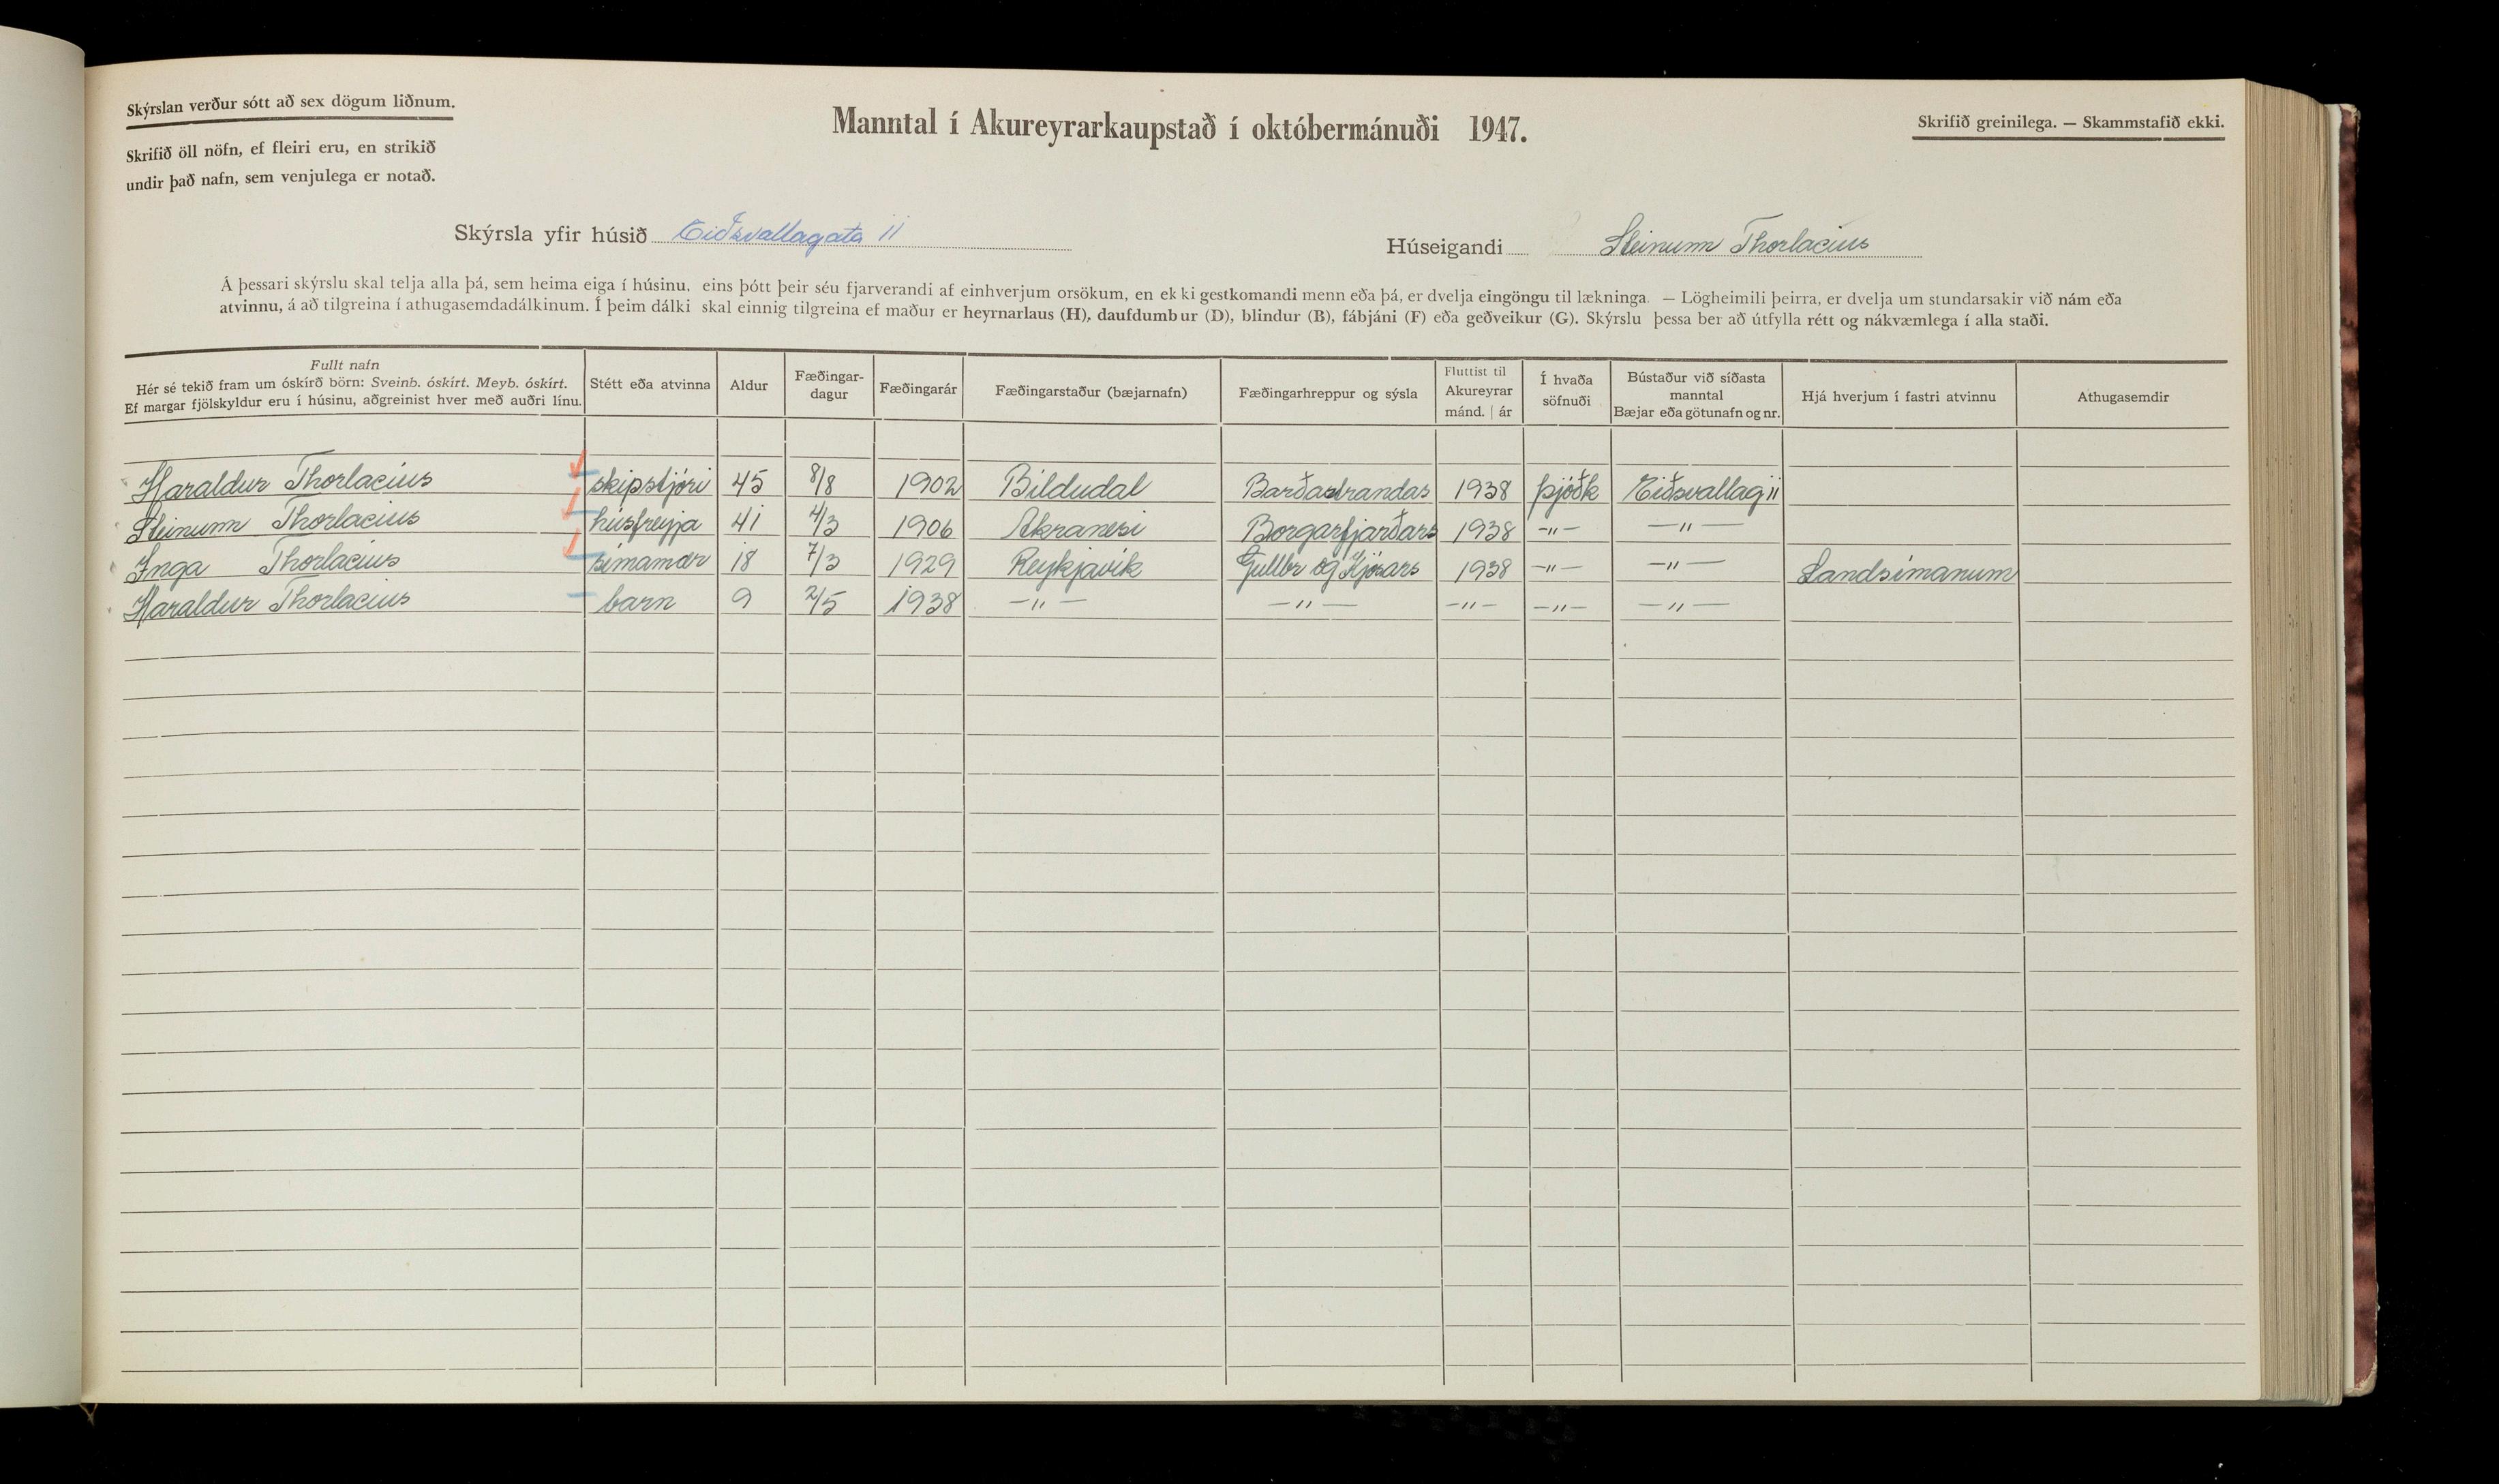 Skýrslan verður sótt að sex dögum liðnum.
Skrifið öll nöfn, ef fleiri eru, en strikið
undir það nafn, sem venjulega er notað.
Manntal í Akureyrarkaupstað í októbermánuði 1947.
Skrifið greinilega. — Skammstafið ekki.
Skýrsla yfir húsið Eiðsvallagata 11
Húseigandi Steinunn Thorlacius
Á þessari skýrslu skal telja alla þá, sem heima eiga í húsinu, eins þótt þeir séu fjarverandi af einhverjum orsökum, en ekki gestkomandi menn eða þá, er dvelja eingöngu til lækninga. — Lögheimili þeirra, er dvelja um stundarsakir við nám eða
atvinnu, á að tilgreina í athugasemdadálkinum. Í þeim dálki skal einnig tilgreina ef maður er heyrnarlaus (H), daufdumbur (D), blindur (B), fábjáni (F) eða geðveikur (G). Skýrslu þessa ber að útfylla rétt og nákvæmlega í alla staði.
Fullt nafn
Hér sé tekið fram um óskírð börn: Sveinb. óskírt. Meyb. óskírt.
Ef margar fjölskyldur eru í húsinu, aðgreinist hver með auðri línu.
Stétt eða atvinna
Aldur
Fæðingar-
dagur
Fæðingarár
Fæðingarstaður (bæjarnafn)
Fæðingarhreppur og sýsla
Fluttist til
Akureyrar
mánd. | ár
Í hvaða
söfnuði
Bústaður við síðasta
manntal
Bæjar eða götunafn og nr.
Hjá hverjum í fastri atvinnu
Athugasemdir
Haraldur Thorlacius skipstjóri 45 8/8 1902 Bíldudal Barðastrandas 1938 Þjóðk Eiðsvallag 11
Steinunn Thorlacius húsfreyja 41 4/3 1906 Akranesi Borgarfjarðars 1938 -"- -"-
Inga Thorlacius símamær 18 7/3 1929 Reykjavík Gullbr og Kjósars 1938 -"- -"- Landsímanum
Haraldur Thorlacius barn 9 2/5 1938 -"- -"- -"- -"- -"-